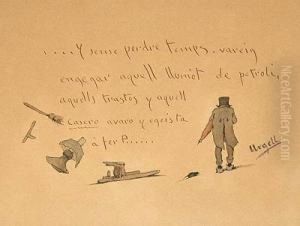 ....Y sense perdre temps, vareig
engegar aquell llumet de petroli,
aquells trastos y aquell
casero avaro y egoista
à fer P......
Urgell
NiceArtGallery.com